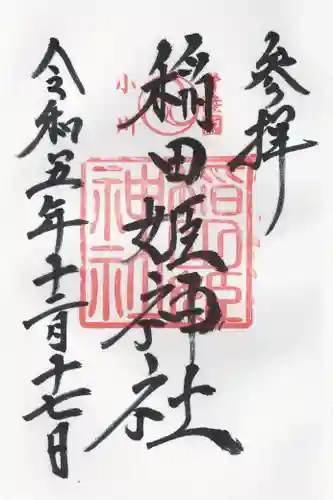 参拝
稲田姫神社
令和五年十二月十七日
稲田姫
神社